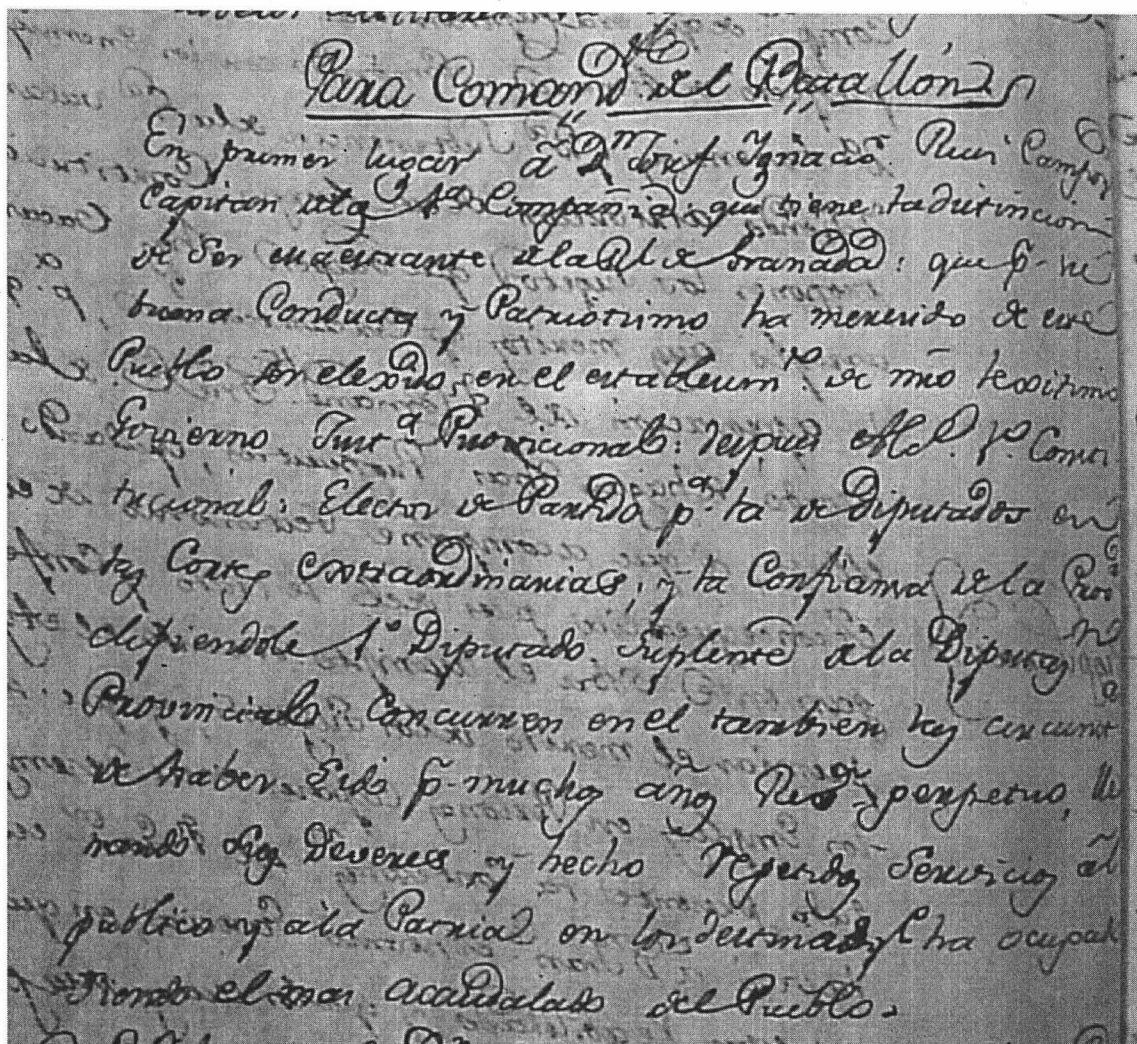 Para Comand.te del Batallón
En primer lugar á D.n Josef Ygnacio Ruiz Campos
Capitan de la 1.a Compañia: que tiene la distincion
de Ser maestrante de la R.l de Granada: que p.r su
buena Conducta y Patriotismo ha merecido de este
Pueblo ser elexido en el establecim.to de nũo lexitimo
Govierno Junt.a Provicional: despues Alc.e 1.o Consti
tucional: Elector de Partido p.a la de Diputados en
las Cortes extraordinarias; y la Confianza de la Prov.a
elifiendole 1.o Diputado Suplente á la Diputaz.n
Provincial: Concurren en el tambien las circunst.s
de haber Sido p.r muchos años Reg.or perpetuo, lle
nando Sus Deveres y hecho repetidos Servicios al
publico y á la Patria en los destinos q.e ha ocupad
Siendo el mas acaudalado del Pueblo.